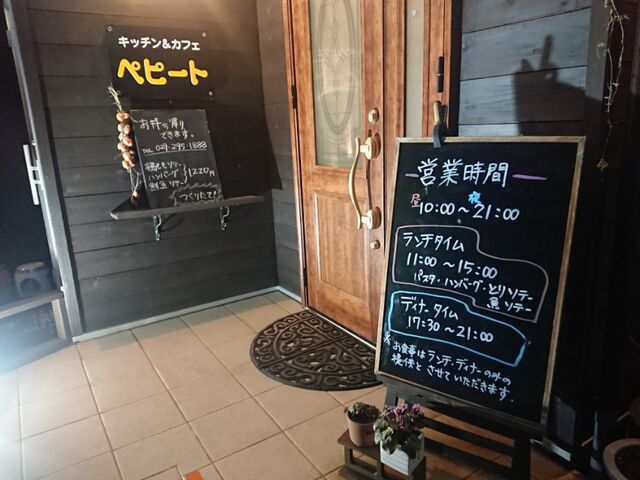 キッチン&カフェ
ペピート
お持ち帰り
できます。
TEL 029-295-1888
ハンバーグ
1220円
つくりたて
営業時間
昼 夜
10:00～21:00
ランチタイム
11:00～15:00
パスタ・ハンバーグ・とりソテー
魚ソテー
ディナータイム
17:30～21:00
※お食事はランチ・ディナーのみの
提供とさせていただきます。